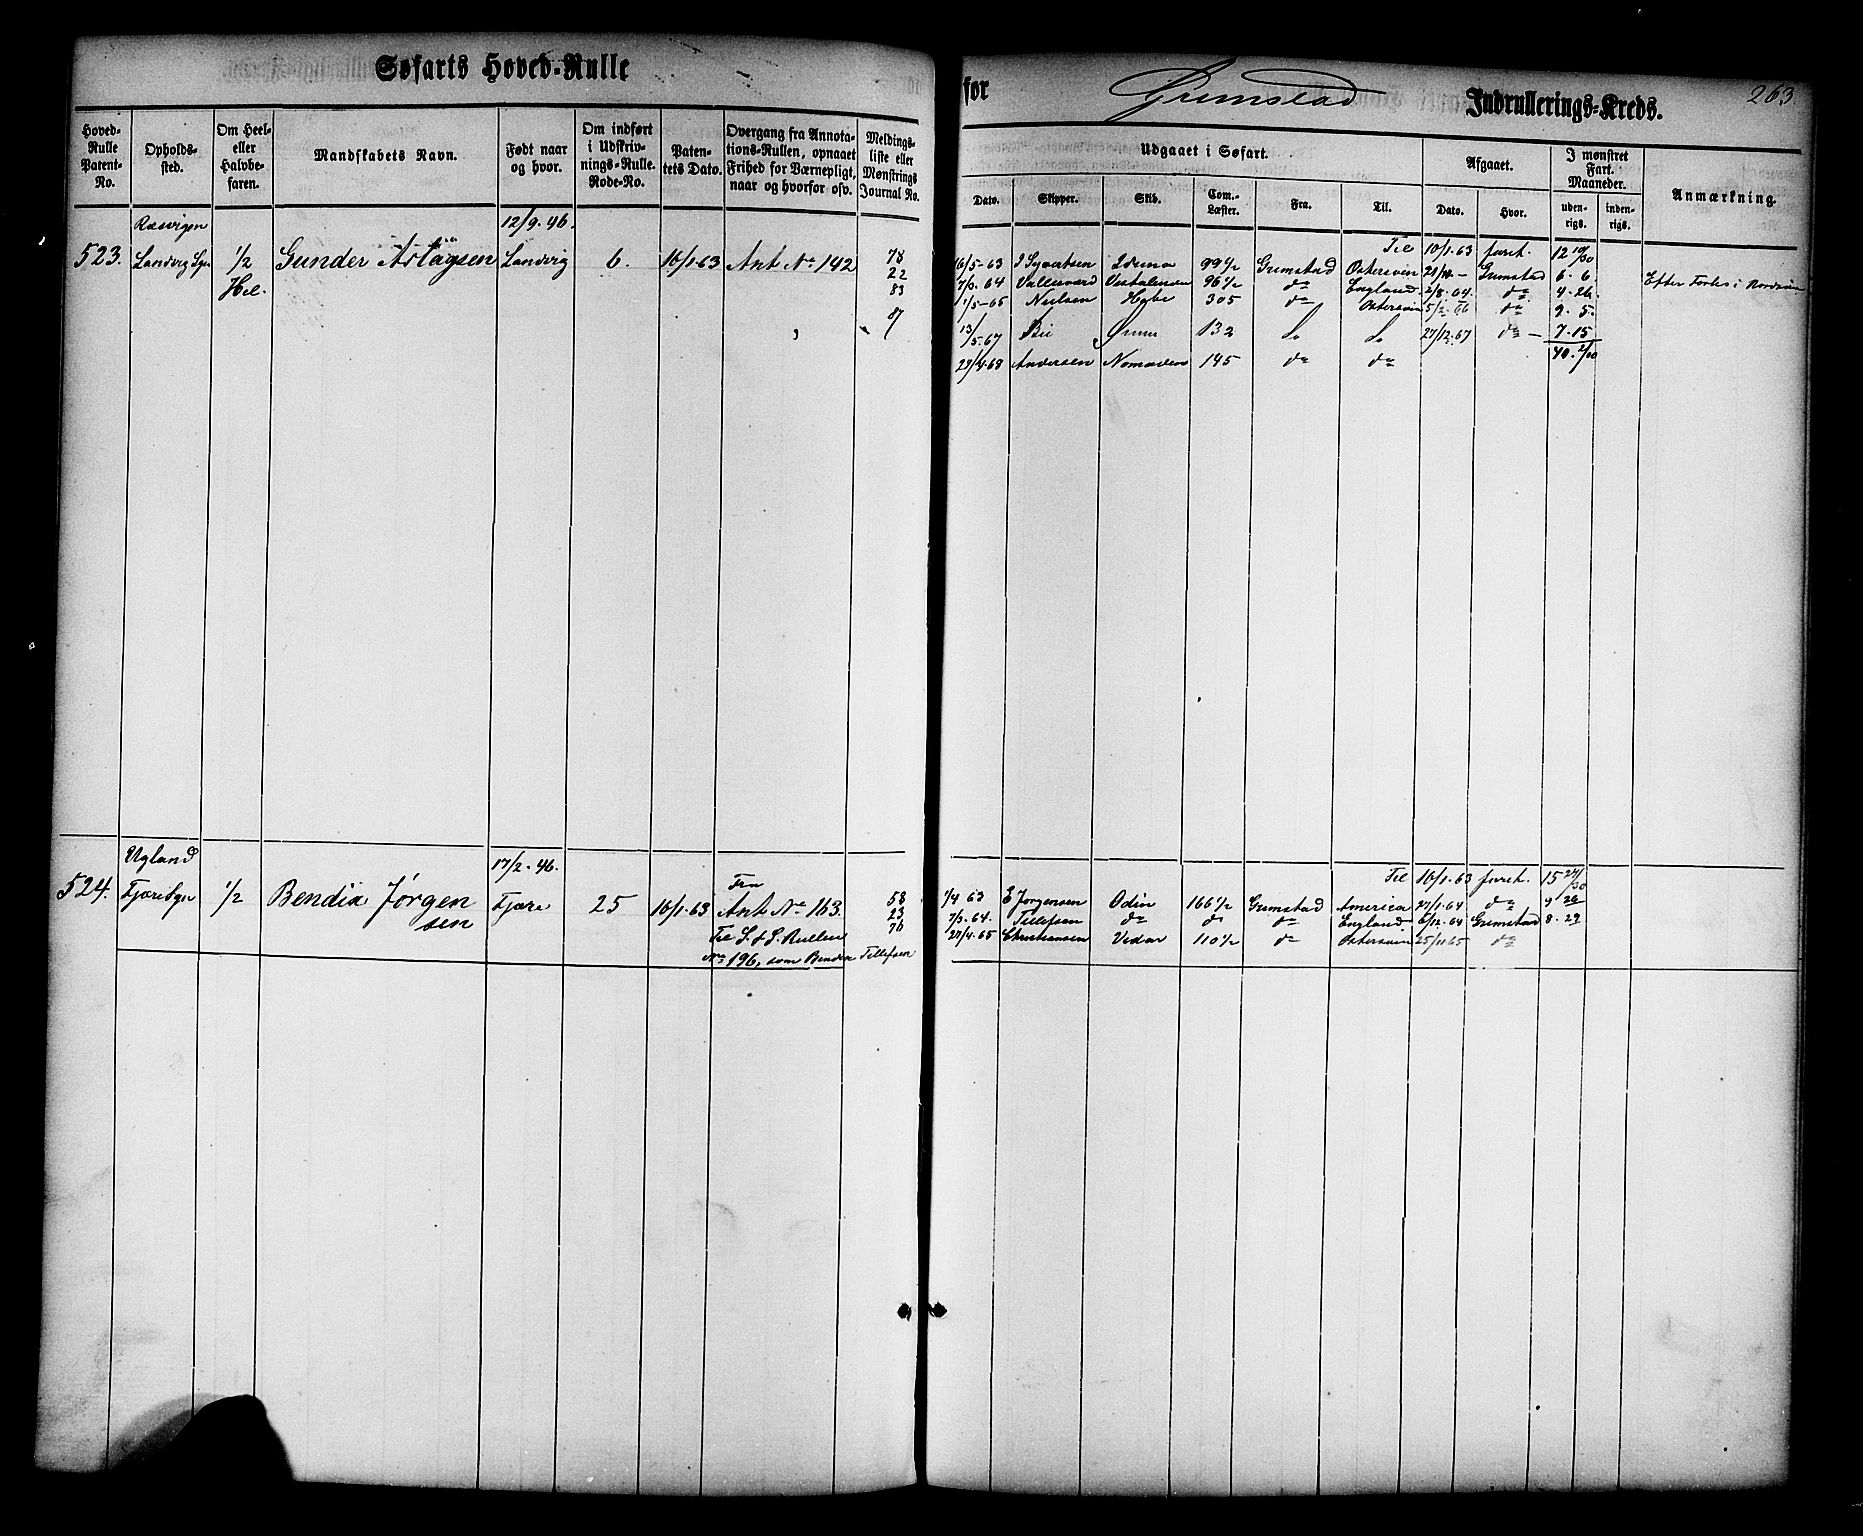 Søfarts Hoved-Rulle
for Grimstad Indrullerings-Kreds.
263
Hoved-Rulle Patent-No.
Opholds-sted.
Om Heel- eller Halvbe-faren.
Mandskabets Navn.
Født naar og hvor.
Om indført i Udskriv-nings-Rulle. Rode-No.
Paten-tets Dato.
Overgang fra Annota-tions-Rullen, opnaaet Frihed for Værnepligt, naar og hvorfor osv.
Meldings-liste eller Mønstrings Journal No.
Udgaaet i Søfart.
Dato.
Skipper.
Skib.
Com.-Læster.
Fra.
Til.
Afgaaet.
Dato.
Hvor.
I mønstret Fart. Maaneder.
uden-rigs.
inden-rigs.
Anmærkning.
12/9.46.
523. Landvig Sgn 1/2 Gunder Aslagsen Landvig 6. 16/1.63 Ant No 142 78
Hel. 22
83
87
Til 10/1.63 faret. 12 10/30
16/5-63 J Syvertsen 99 1/2 Grimstad Østersøen
7/3.64 96 1/2 do England 2/8.64 do 4.26
1/5-65 Nielsen Hebe 305 do Østersøen 5/2.66 do 9.5.
13/5.67 Bie 132 27/12.67 do 7.15
40.2/30
23/4.68 Andersen Nomaden 145 do do
Ugland 17/2.46.
524. Fjære Sgn 1/2 Bendix Jørgen Fjære 25 16/1.63 Fra
sen Ant No 163. 58
Til S. & S. Rullen 23
70
No 196, som Bendix Tellefsen
Til 16/1.63 faret. 15 27/30
1/4 63 E Jørgensen Odin 166 1/2 Grimstad America 27/1.64 do 9 26
7/3.64. Tellefsen do do do England 6/12.64 Grimstad 8.29
27/4.65 Christiansen Vidar 110 1/2 do Østersøen 25/11 65 do